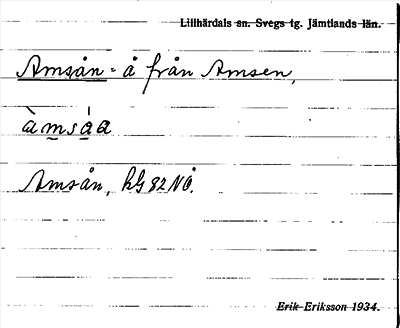 Lillhärdals sn. Svegs tg. Jämtlands län.
Amsån = å från Amsen,
àmsáa
Amsån, kG 82 NÖ.
Erik Eriksson 1934.